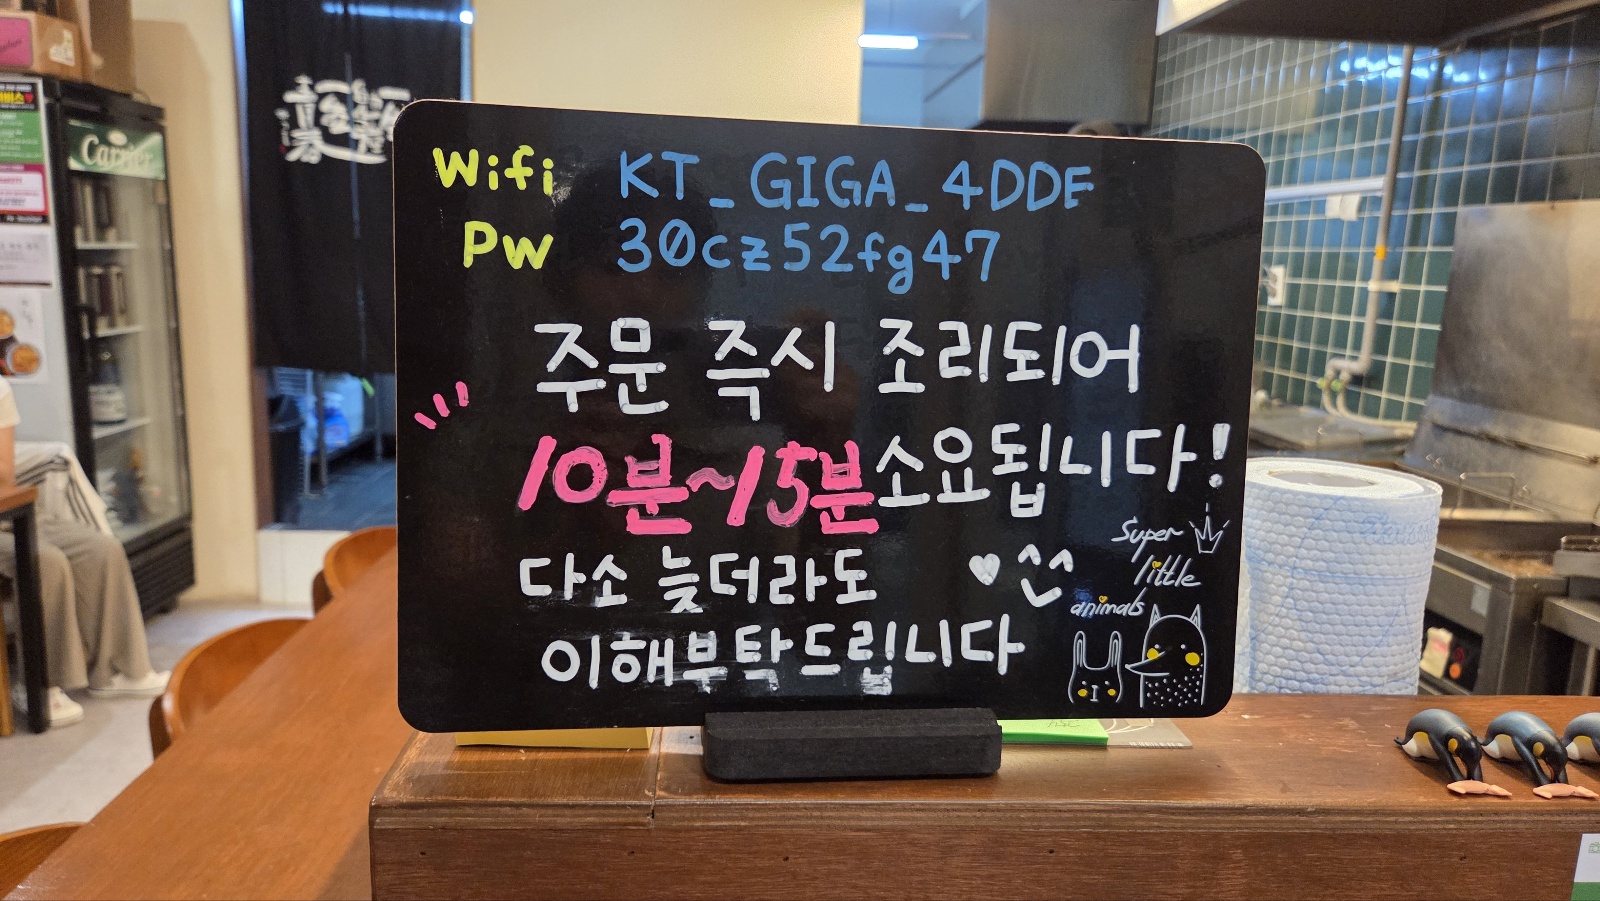 Carrier
Wifi KT_GIGA_4DDE
PW 30cz52fg47
주문 즉시 조리되어
10분~15분 소요됩니다!
다소 늦더라도
이해부탁드립니다
Super
little
animals